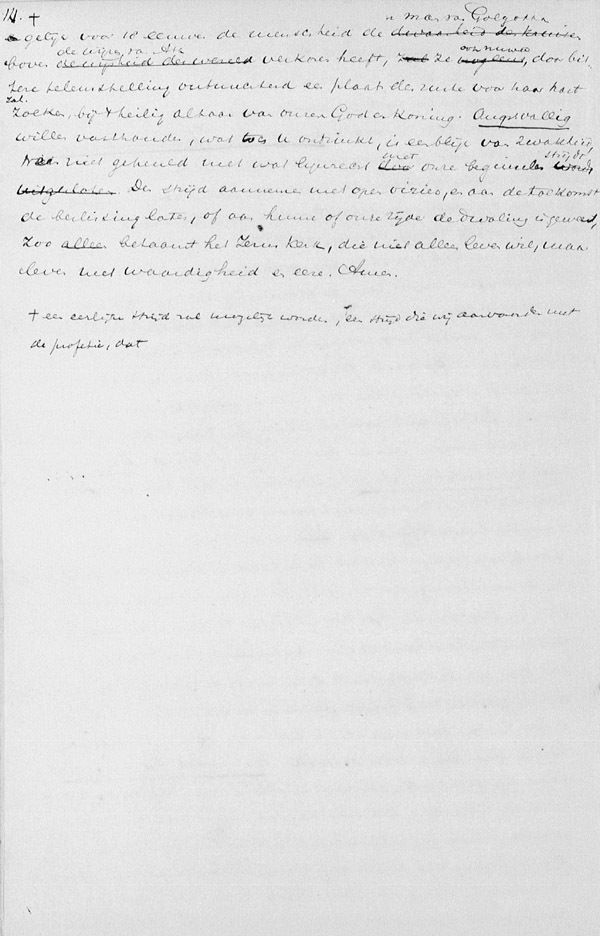 14. +
Man van Golgotha
gelijk voor 18 eeuwen de menscheid de dwaasheid des kruises
de wijzen van Ath
boven de wijsheid der wereld verkoren heeft, zal ze nogeens, door bit-
opnieuw
tere teleurstelling ontnuchterd een plaats der ruste voor haar hart
zal
zoeken, bij 't heilig altaar van onzen God en Koning. Angstvallig
willen vasthouden, wat ons ontzinkt, is een blijk van zwakheid,
niet gehuwd met wat lijnrecht met onze beginselen strijdt
uitgesloten. Den strijd aannemen met open vizier, en aan de toekomst
de beslissing laten, of aan hunne of onze zijde de dwaling is geweest,
Zoo alleen betaamt het Jezus Kerk, die niet alleen leven wil, maar
leven met waardigheid en eere. Amen.
+ een eerlijke strijd zal mogelijk worden, een strijd die wij aanvaarden met
de profetie, dat